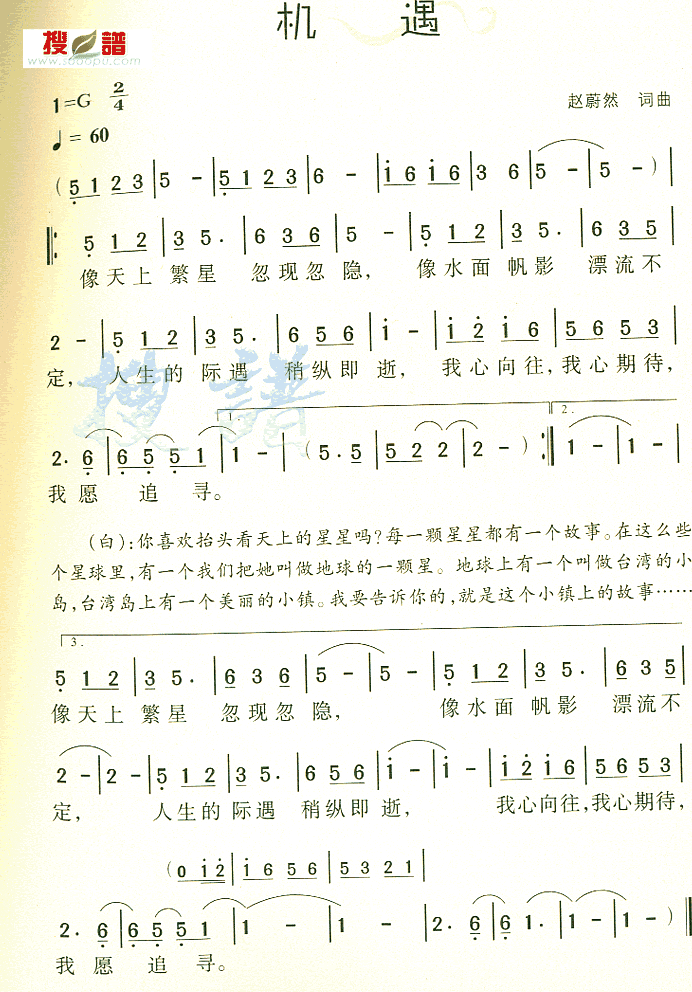 机 遇
搜谱
www.sooopu.com
1=G 2/4
赵蔚然 词曲
♩= 60
( 5 1 2 3 | 5 - | 5 1 2 3 | 6 - | i 6 i 6 | 3 6 | 5 - | 5 - ) |
5 1 2 | 3 5. | 6 3 6 | 5 - | 5 1 2 | 3 5. | 6 3 5 |
像天上 繁星 忽现忽隐, 像水面 帆影 漂流不
2 - | 5 1 2 | 3 5. | 6 5 6 | i - | i 2 i 6 | 5 6 5 3 |
定, 人生的 际遇 稍纵即 逝, 我心向往,我心期待,
搜谱
1. 2.
2. 6 | 6 5 5 1 | 1 - | ( 5. 5 | 5 2 2 | 2 - ) :|| 1 - | 1 - |
我愿 追 寻。
(白):你喜欢抬头看天上的星星吗?每一颗星星都有一个故事。在这么些
个星球里,有一个我们把她叫做地球的一颗星。地球上有一个叫做台湾的小
岛,台湾岛上有一个美丽的小镇。我要告诉你的,就是这个小镇上的故事……
3.
5 1 2 | 3 5. | 6 3 6 | 5 - | 5 - | 5 1 2 | 3 5. | 6 3 5 |
像天上 繁星 忽现忽 隐, 像水面 帆影 漂流不
2 - | 2 - | 5 1 2 | 3 5. | 6 5 6 | i - | i - | i 2 i 6 | 5 6 5 3 |
定, 人生的 际遇 稍纵即 逝, 我心向往,我心期待,
( 0 i 2 | i 6 5 6 | 5 3 2 1 |
2. 6 | 6 5 5 1 | 1 - | 1 - | 2. 6 | 6 1. | 1 - | 1 - ) ||
我愿 追 寻。